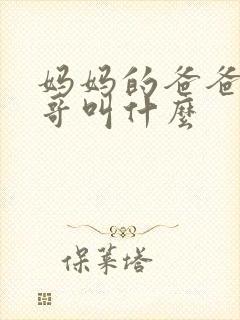 妈妈的爸爸
哥叫什麼
保莱塔